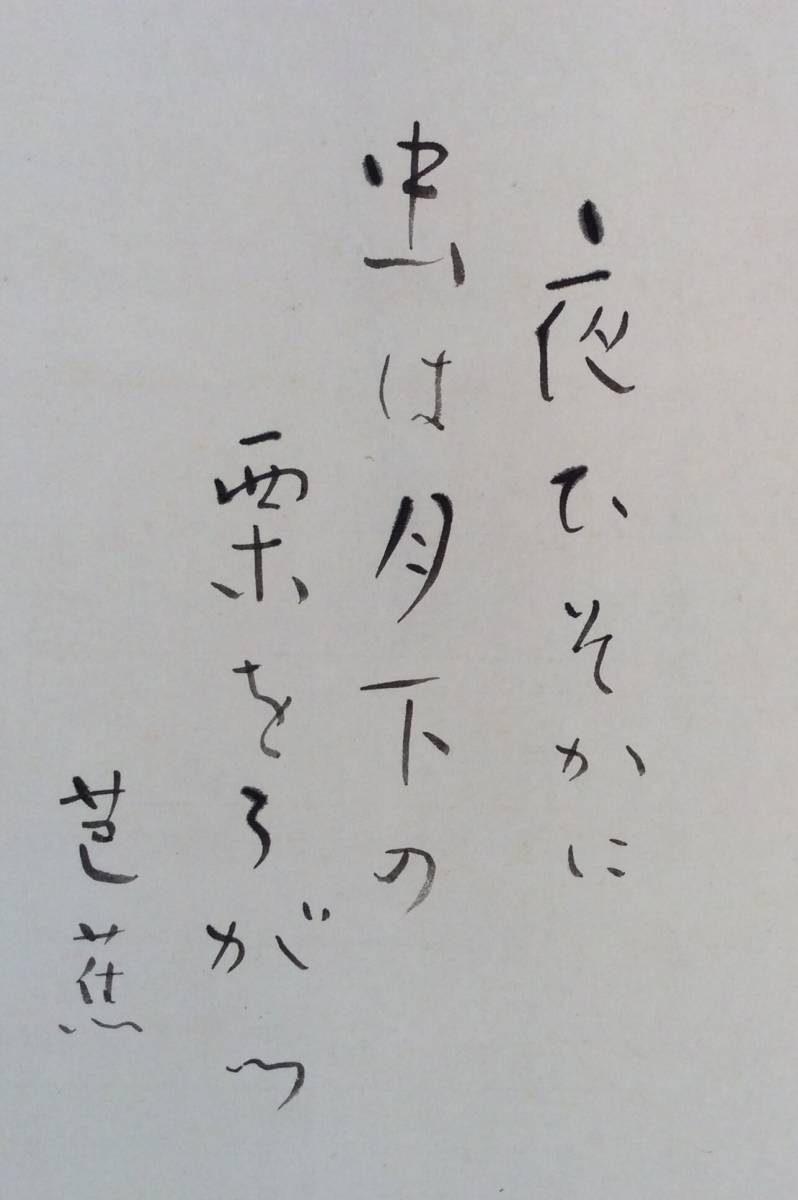 夜ひそかに
虫は月下の
栗をうがつ
芭蕉